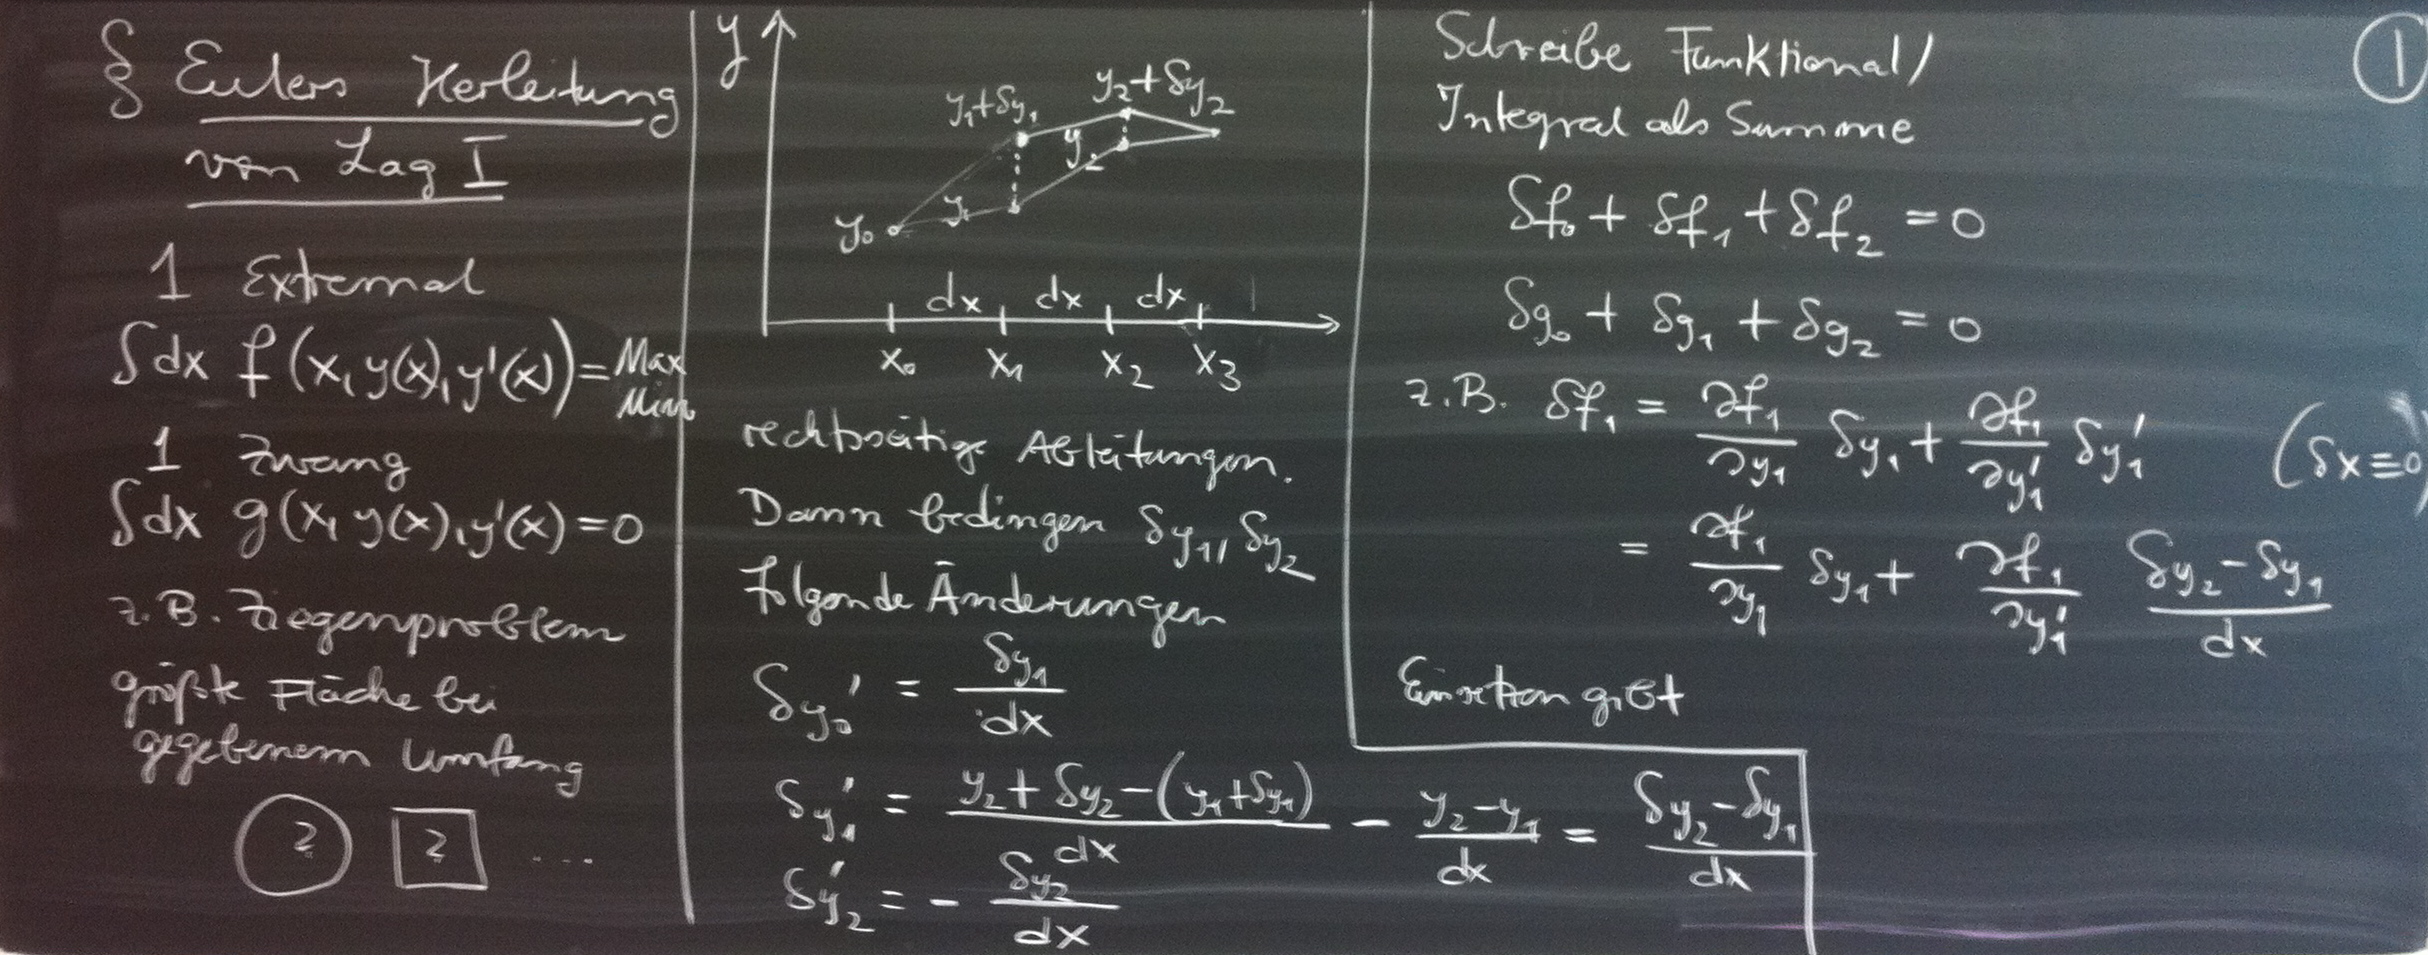 § Eulers Herleitung
von Lag I
1 Extremal
∫dx f(x, y(x), y'(x)) = Max
Min
1 Zwang
∫dx g(x, y(x), y'(x) = 0
z.B. Ziegenproblem
größte Fläche bei
gegebenem Umfang
? ? ....
y
y₁+δy₁ y₂+δy₂
y₂
y₀ y₁
dx dx dx
x₀ x₁ x₂ x₃
rechtsseitige Ableitungen.
Dann bedingen δy₁, δy₂
folgende Änderungen
δy₀' = δy₁/dx
δy₁' = (y₂ + δy₂ - (y₁ + δy₁))/dx - (y₂ - y₁)/dx = (δy₂ - δy₁)/dx
δy₂' = - δy₂/dx
①
Schreibe Funktional/
Integral als Summe
δf₀ + δf₁ + δf₂ = 0
δg₀ + δg₁ + δg₂ = 0
z.B. δf₁ = ∂f₁/∂y₁ δy₁ + ∂f₁/∂y₁' δy₁' (δx ≡ 0)
= ∂f₁/∂y₁ δy₁ + ∂f₁/∂y₁' (δy₂ - δy₁)/dx
Einsetzen gibt